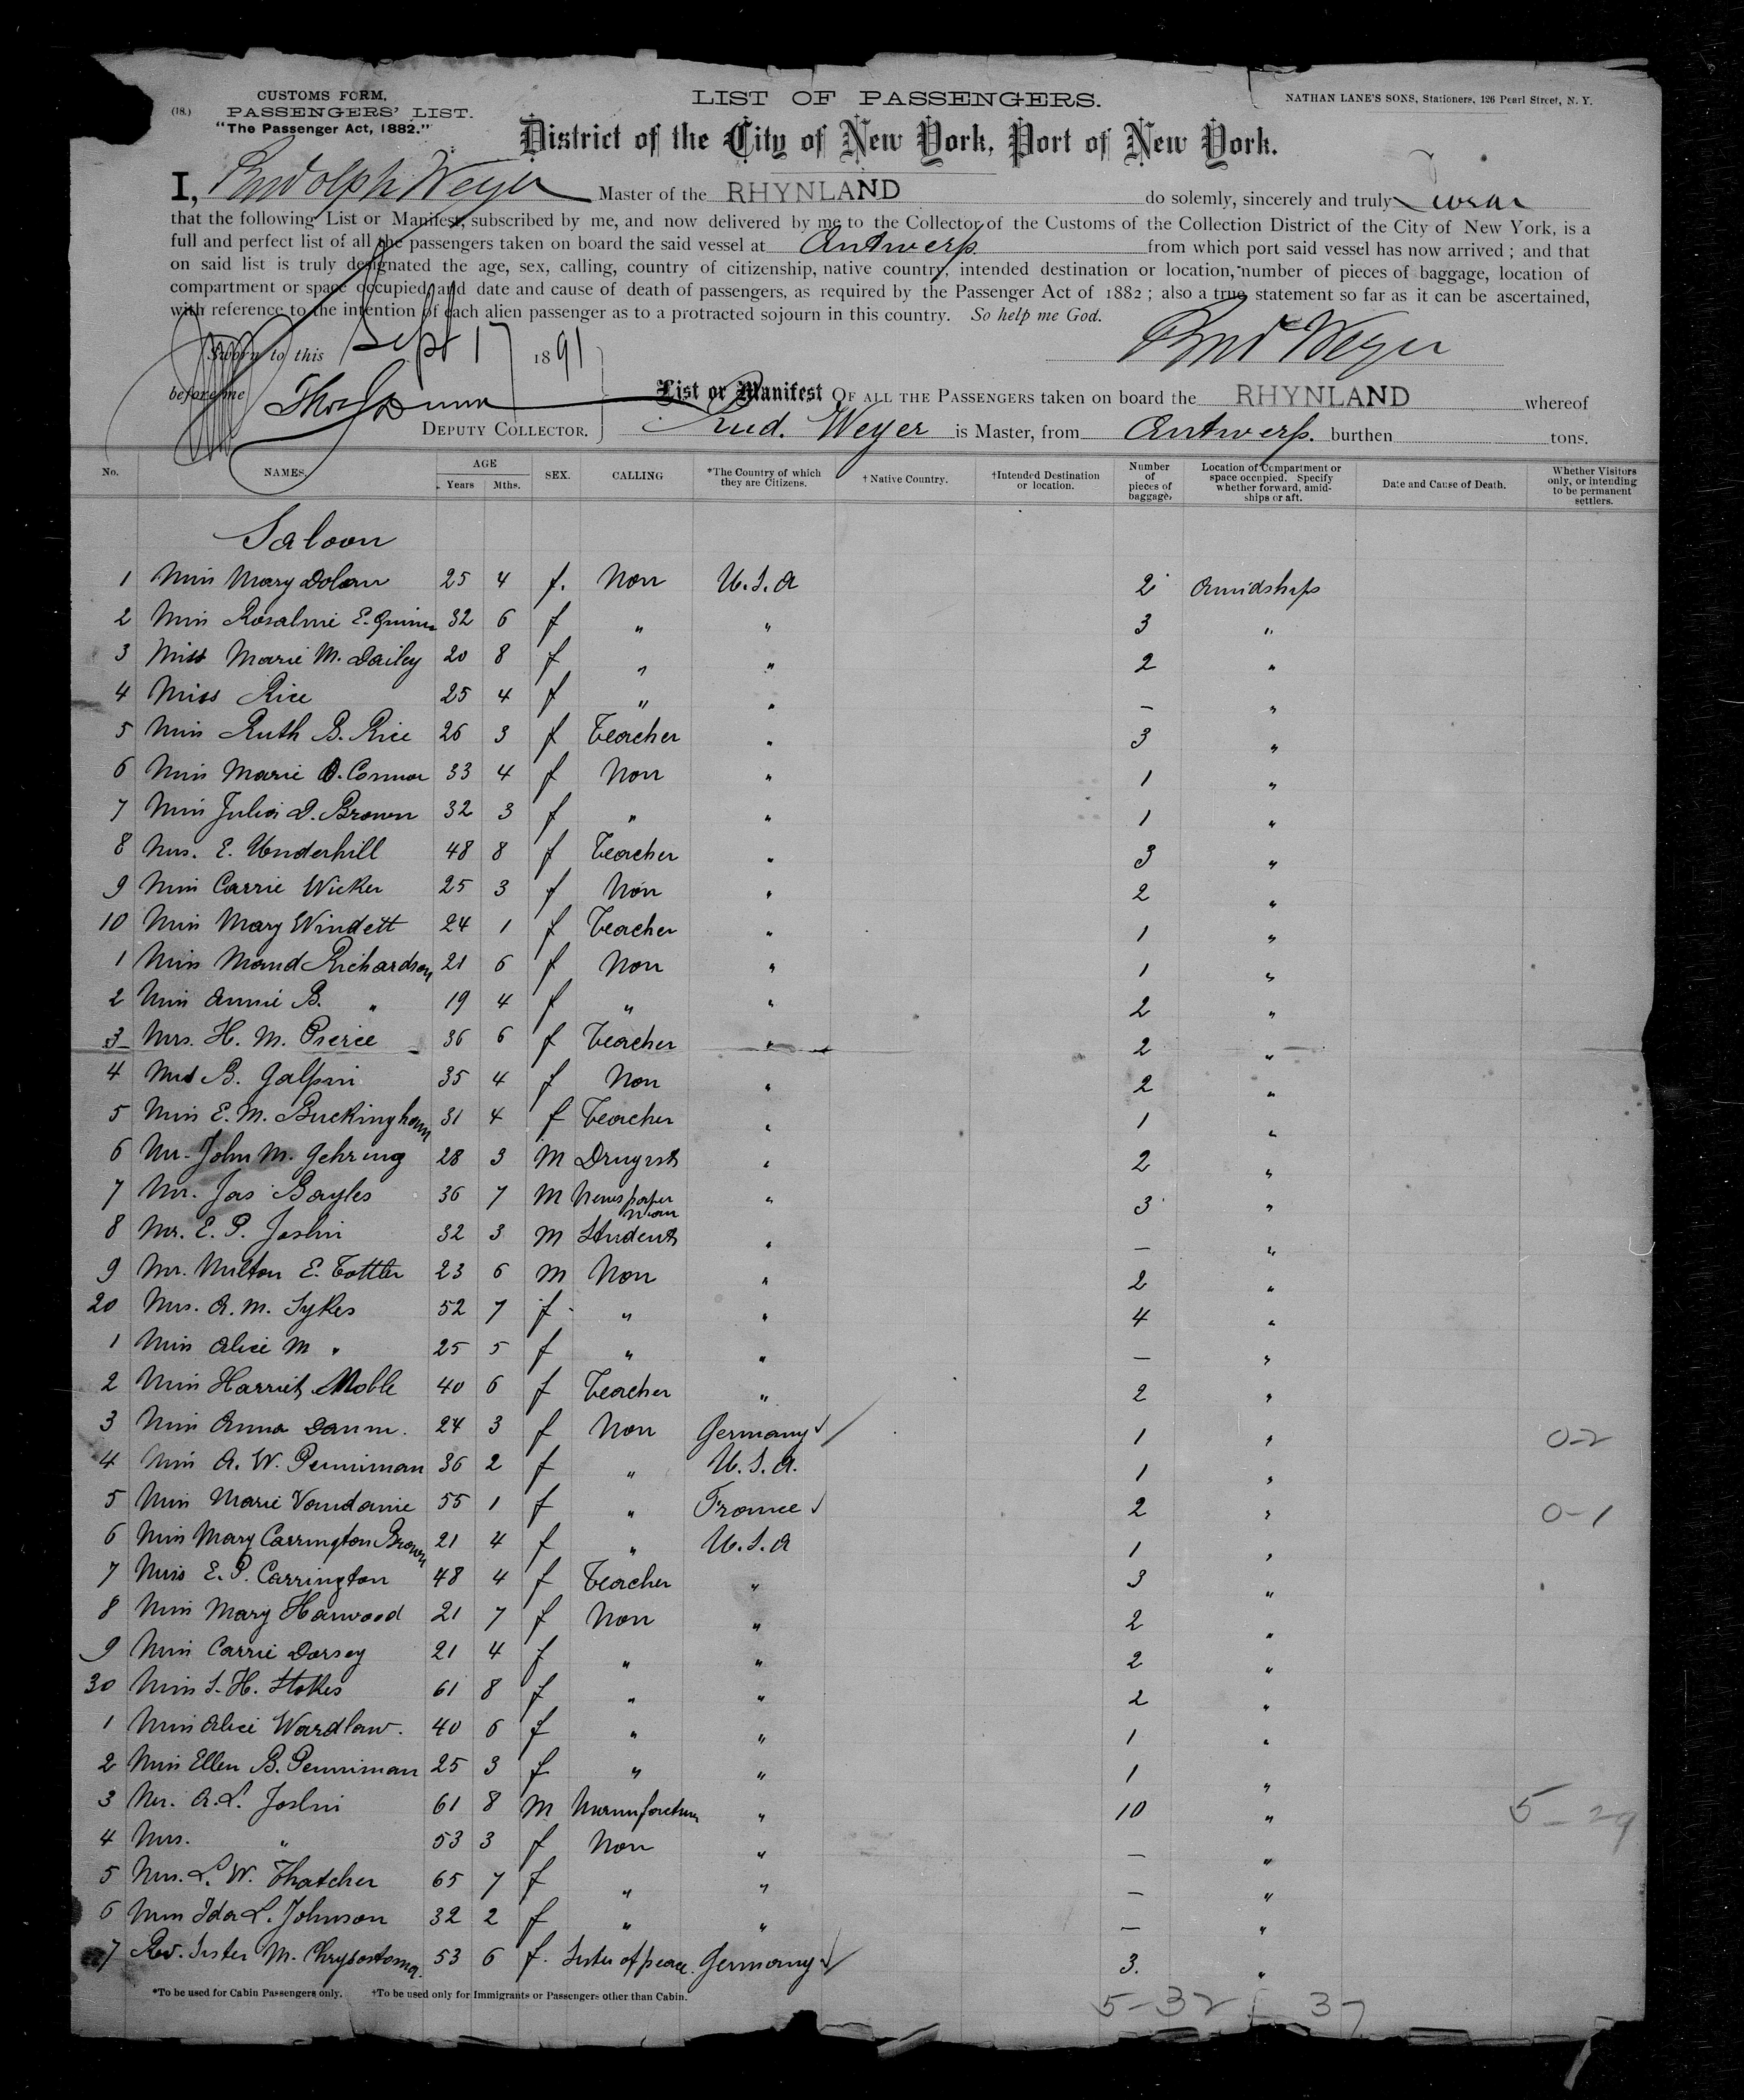 CUSTOMS FORM.
(18.) PASSENGERS' LIST.
"The Passenger Act, 1882."
LIST OF PASSENGERS.
NATHAN LANE'S SONS, Stationers, 126 Pearl Street, N. Y.
District of the City of New York, Port of New York.
I, Rudolph Weyer Master of the RHYNLAND do solemnly, sincerely and truly swear
that the following List or Manifest, subscribed by me, and now delivered by me to the Collector of the Customs of the Collection District of the City of New York, is a
full and perfect list of all the passengers taken on board the said vessel at Antwerp from which port said vessel has now arrived; and that
on said list is truly designated the age, sex, calling, country of citizenship, native country, intended destination or location, number of pieces of baggage, location of
compartment or space occupied, and date and cause of death of passengers, as required by the Passenger Act of 1882; also a true statement so far as it can be ascertained,
with reference to the intention of each alien passenger as to a protracted sojourn in this country. So help me God.
Sworn to this Sept 17 1891 Rud Weyer
before me Thos Dunn
DEPUTY COLLECTOR.
List or Manifest OF ALL THE PASSENGERS taken on board the RHYNLAND whereof
Rud. Weyer is Master, from Antwerp. burthen tons.
No. NAMES. AGE Years Mths. SEX. CALLING *The Country of which they are Citizens. †Native Country. †Intended Destination or location. Number of pieces of baggage. Location of Compartment or space occupied. Specify whether forward, amidships or aft. Date and Cause of Death. Whether Visitors only, or intending to be permanent settlers.
Saloon
1 Miss Mary Dolan 25 4 f. Non U.S.A 2 Amidships
2 Miss Rosalmie E. Quinn 32 6 f " " 3 "
3 Miss Marie M. Dailey 20 8 f " " 2 "
4 Miss Rice 25 4 f " " — "
5 Miss Ruth B. Rice 26 3 f Teacher " 3 "
6 Miss Marie O. Connor 33 4 f Non " 1 "
7 Miss Julia D. Brown 32 3 f " " 1 "
8 Mrs. E. Underhill 48 8 f Teacher " 3 "
9 Miss Carrie Wicker 25 3 f Non " 2 "
10 Miss Mary Windett 24 1 f Teacher " 1 "
1 Miss Maud Richardson 21 6 f Non " 1 "
2 Miss Annie B. " 19 4 f " " 2 "
3 Mrs. H. M. Pierce 36 6 f Teacher " 2 "
4 B. Galpin 35 4 f Non " 2 "
5 Miss E. M. Buckingham 31 4 f Teacher " 1 "
6 Mr. John M. Gehring 28 3 M Drugist " 2 "
7 Mr. Jas Bayles 36 7 M Newspaper man " 3 "
8 Mr. E. P. Joslin 32 3 M Student " — "
9 Mr. Milton E. Tottler 23 6 M Non " 2 "
20 Mrs. A. M. Sykes 52 7 f " " 4 "
1 Miss Alice M " 25 5 f " " — "
2 Miss Harriet Noble 40 6 f Teacher " 2 "
3 Miss Anna Daum. 24 3 f Non Germany 1 " 0-2
4 Miss A. W. Penniman 36 2 f " U.S.A. 1 "
5 Miss Marie Vandanie 55 1 f " France 2 " 0-1
6 Miss Mary Carrington Brown 21 4 f " U.S.A 1 "
7 Miss E. P. Carrington 48 4 f Teacher " 3 "
8 Miss Mary Harwood 21 7 f Non " 2 "
9 Miss Carrie Dorsey 21 4 f " " 2 "
30 Miss S. H. Stokes 61 8 f " " 2 "
1 Miss Alice Wardlaw. 40 6 f " " 1 "
2 Miss Ellen B. Penniman 25 3 f " " 1 "
3 Mr. A. L. Joslin 61 8 M " 10 " 5-29
4 Mrs. " 53 3 f Non " — "
5 Mrs. L. W. Thatcher 65 7 f " " — "
6 Miss Ida L. Johnson 32 2 f " " — "
7 Rev. Sister M. Chrysostoma. 53 6 f. Sister of peace. Germany 3. "
*To be used for Cabin Passengers only. †To be used only for Immigrants or Passengers other than Cabin.
5-32 37